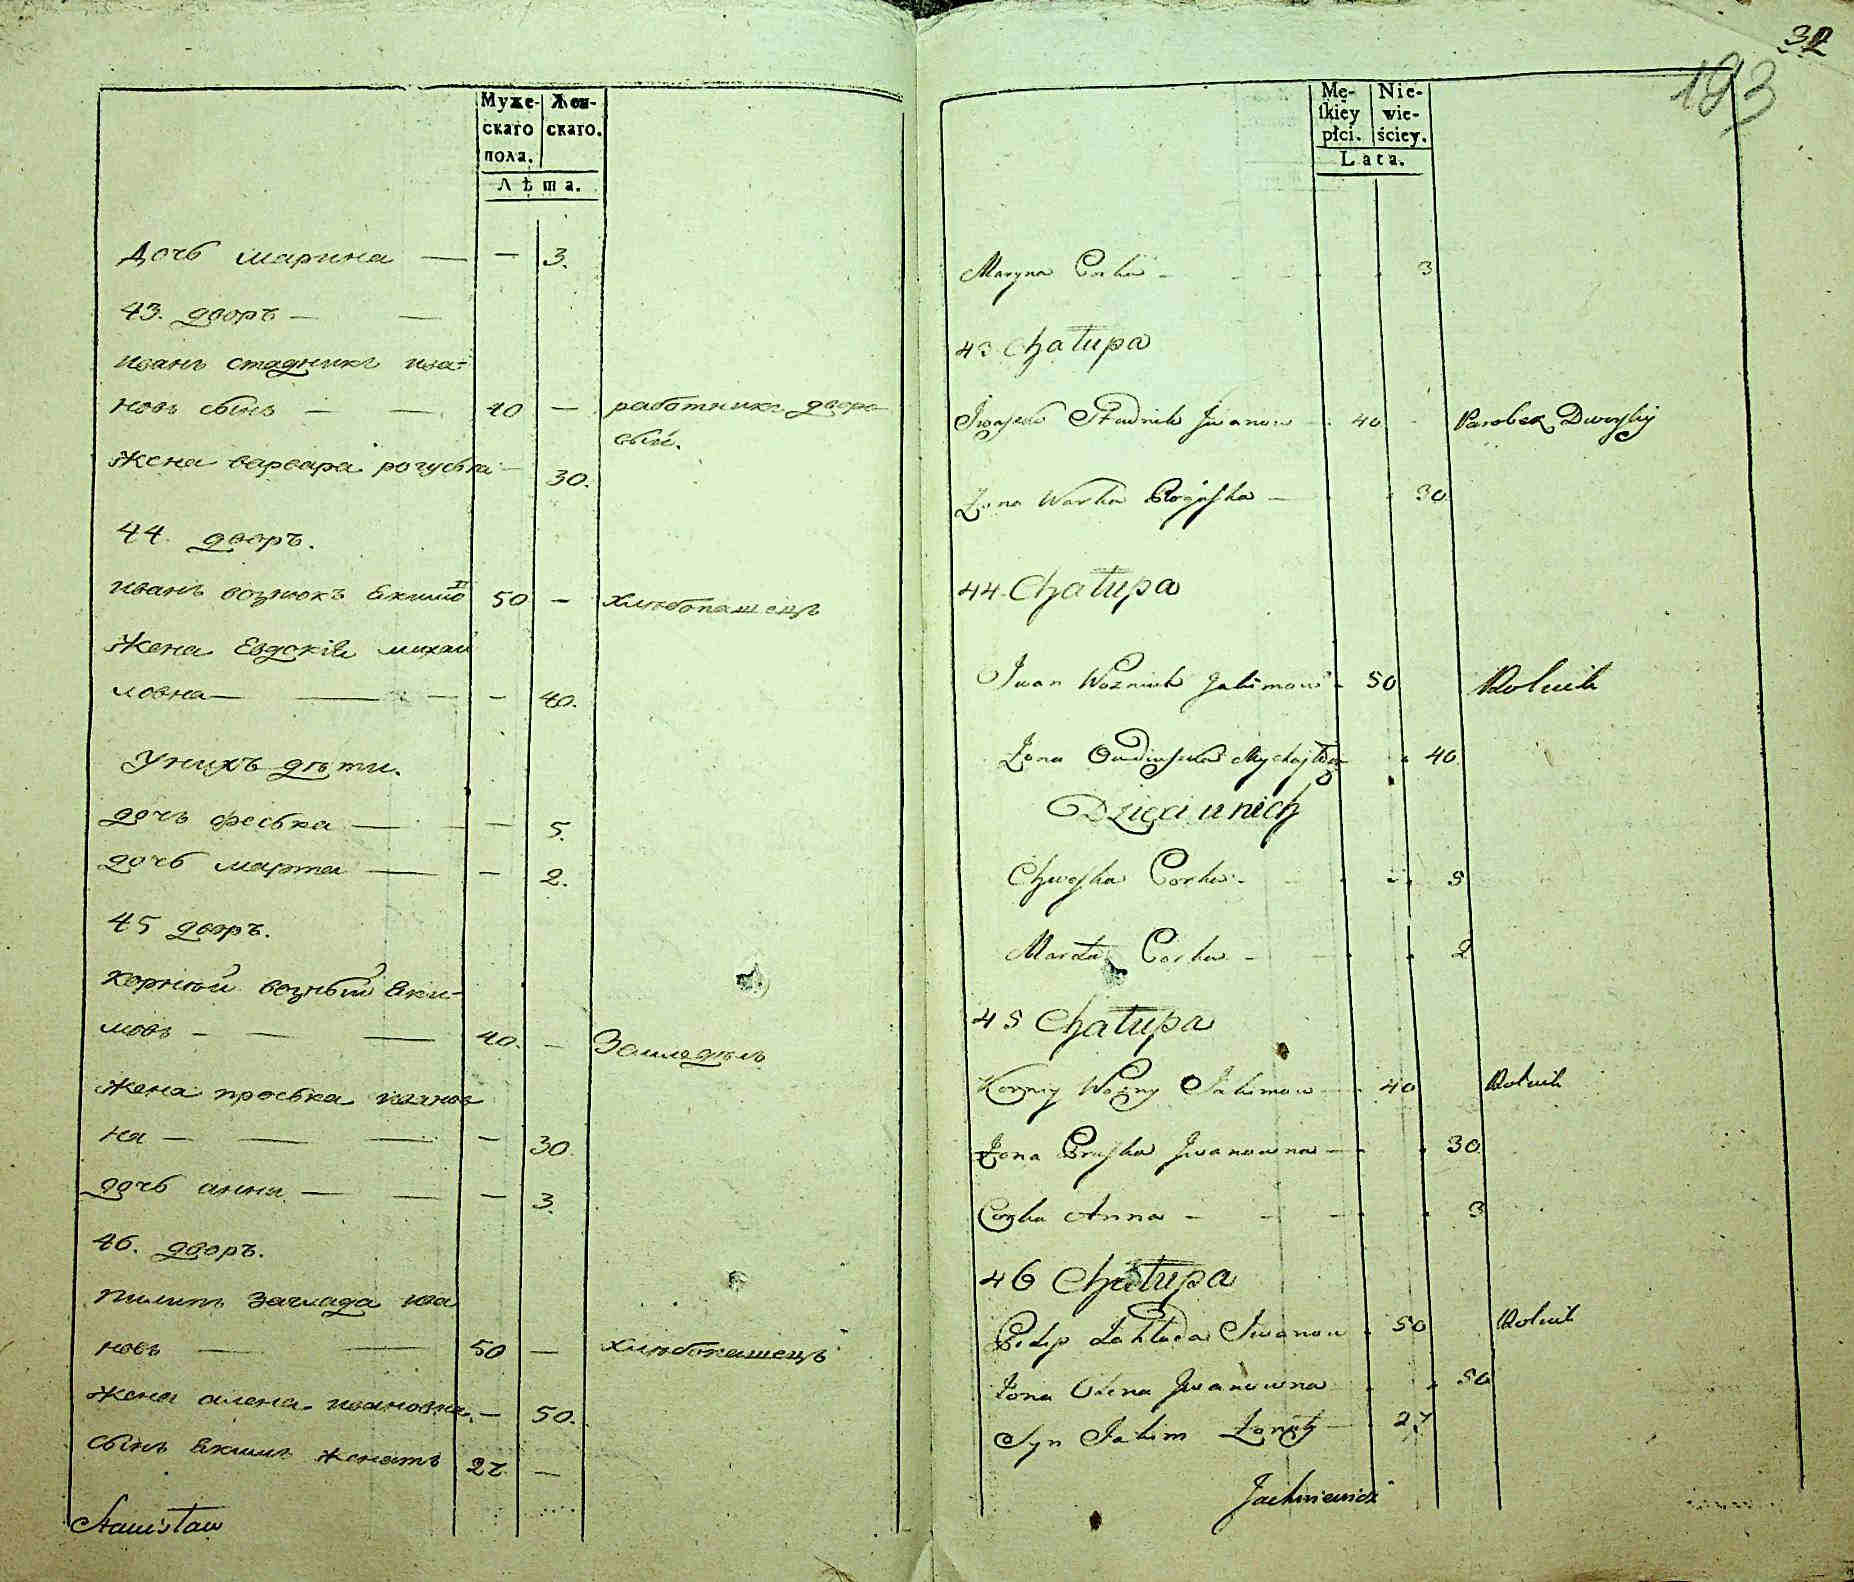 Муже- Жен-
скаго скаго.
пола.
Лѣта.
Дочь марина — — 3.
43. дворъ — —
иванъ стадникъ ива-
новъ сынъ — — 40 — работникъ дворс
кый.
жена варвара рогуська — 30.
44. дворъ.
иванъ вознюкъ Якимо 50 — хлѣбопашецъ
жена Евдокія михай
ловна — — — — 40.
У нихъ дѣти.
дочь феська — — — 5.
дочь марта — — 2.
45 дворъ.
корнѣй возный Яки-
мовъ — — — 40. — Земледѣль
жена проська иванов
на — — — — 30.
дочь анна — — — 3.
46. дворъ.
пилипъ заглада ива
новъ — — 50 — хлѣбопашецъ
жена алена ивановна. — 50.
сынъ Якимъ женатъ 27. —
Stanisław
32
193
Mę- Nie-
skiey wie-
płci. ściey.
Lata.
Maryna Corka - - - 3
43 Chałupa
Iwaszko Stadnik Iwanow - 40 - Parobek Dworsky
Żona Warka Roguska — 30
44 Chałupa
Iwan Wozniuk Jakimow - 50 Rolnik
Żona Owdiuszka Mychajłow 40
Dzieci u nich
Chweska Corka - - 5
Marta Corka - - 2
45 Chałupa
Korniy Wozny Jakimow — 40 Rolnik
Żona Pruska Iwanowna — 30
Corka Anna - - - 3
46 Chałupa
Pilip Zahłada Iwanow 50 Rolnik
Żona Olena Iwanowna 50
Syn Jakim Żonaty — 27
Jachniewicz